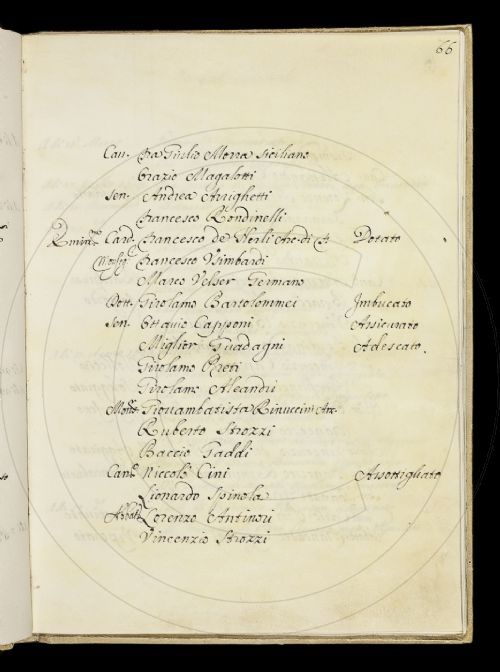 66
Can. fra Giulio Morra siciliano
Orazio Magalotti
Sen. Andrea Arrighetti
Francesco Rondinelli
Emin.mo Card. Francesco de Nerli Arc. di F. Dotato
Monsig. Francesco Usimbardi
Marco Velser Germano
Dott. Girolamo Bartolommei Imbucato
Sen. Ottavio Capponi Assicurato
Miglior Guadagni Adescato.
Girolamo Preti
Girolamo Aleandri
Mons. Giovambatista Rinuccini Arc.
Ruberto Strozzi
Baccio Gaddi
Can. Niccolò Cini Assottigliato
Lionardo Spinola
Abbate Lorenzo Antinori
Vincenzio Strozzi